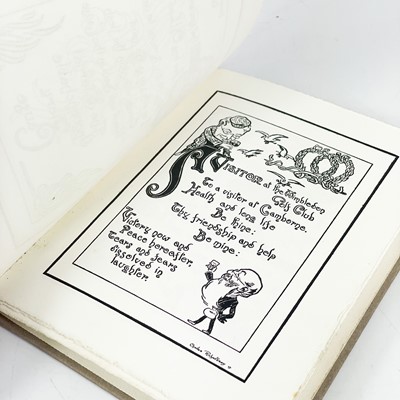 A VISITOR at the Wimbledon
Golf Club
To a visitor at Camborne.
Health and long life
Be thine:
Thy friendship and help
Be mine:
Victory now and
Peace hereafter,
Tears and fears
dissolved in
laughter.